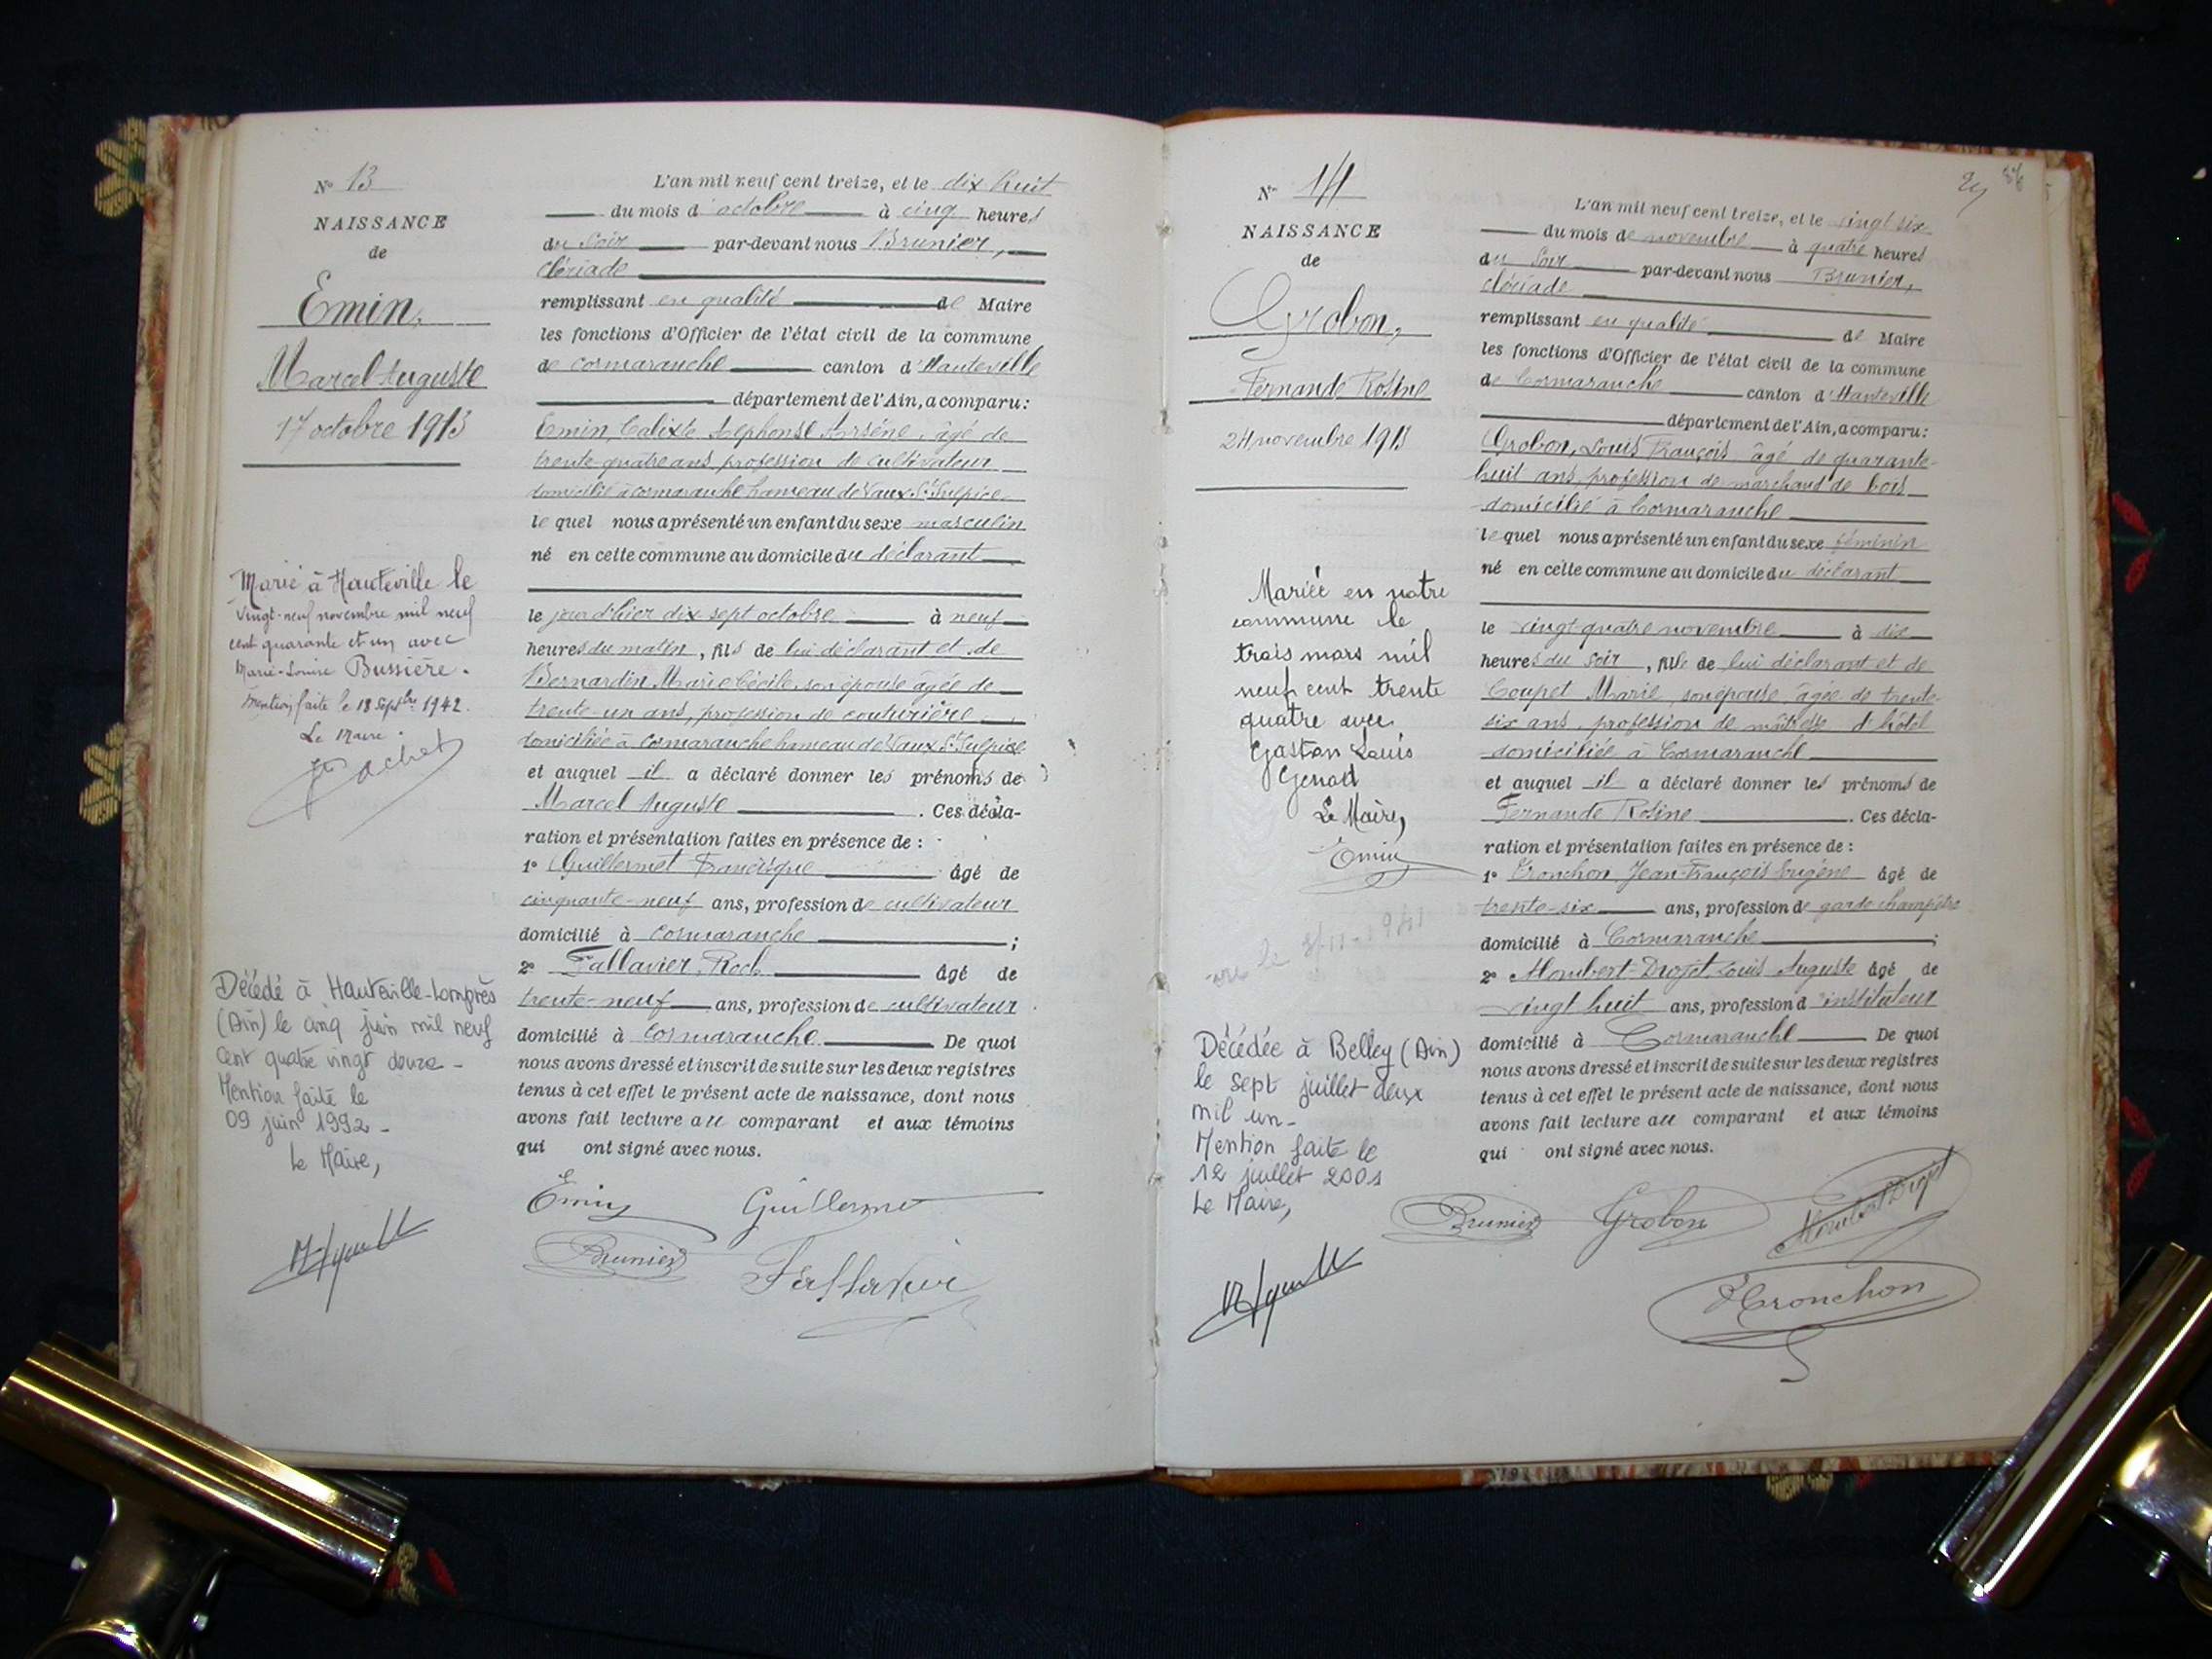 N° 13
NAISSANCE
de
Emin,
Marcel Auguste
17 octobre 1913
Marié à Hauteville le
vingt-neuf novembre mil neuf
cent quarante et un avec
Marie-Louise Bussière.
Mention faite le 18 Septbre 1942.
Le Maire.
Décédé à Hauteville-Lompnès
(Ain) le cinq juin mil neuf
cent quatre vingt douze -
Mention faite le
09 juin 1992 -
Le Maire,
L'an mil neuf cent treize, et le dix huit
du mois d'octobre à cinq heures
du soir par-devant nous Brunier,
Clériade
remplissant en qualité de Maire
les fonctions d'Officier de l'état civil de la commune
de Cormaranche canton d'Hauteville
département de l'Ain, a comparu:
Emin, Calixte Alphonse Arsène, âgé de
trente-quatre ans profession de cultivateur
domicilié à Cormaranche hameau de Vaux St Sulpice
lequel nous a présenté un enfant du sexe masculin
né en cette commune au domicile du déclarant
le jour d'hier dix sept octobre à neuf
heures du matin, fils de lui déclarant et de
Bernardin Marie Cécile, son épouse âgée de
trente-un ans, profession de couturière
domiciliée à Cormaranche hameau de Vaux St Sulpice
et auquel il a déclaré donner les prénoms de
Marcel Auguste . Ces décla-
ration et présentation faites en présence de :
1° Guillermet Francisque âgé de
cinquante-neuf ans, profession de cultivateur
domicilié à Cormaranche ;
2° Fallavier, Roch âgé de
trente-neuf ans, profession de cultivateur
domicilié à Cormaranche. De quoi
nous avons dressé et inscrit de suite sur les deux registres
tenus à cet effet le présent acte de naissance, dont nous
avons fait lecture au comparant et aux témoins
qui ont signé avec nous.
Emin Guillermet
Brunier Fallavier
N° 14
NAISSANCE
de
Grobon,
Fernande Rosine
24 novembre 1913
Mariée en notre
commune le
trois mars mil
neuf cent trente
quatre avec
Gaston Louis
Le Maire,
Emin
Décédée à Belley (Ain)
le sept juillet deux
mil un -
Mention faite le
12 juillet 2001
Le Maire,
L'an mil neuf cent treize, et le vingt six
du mois de novembre à quatre heures
du soir par-devant nous Brunier,
Clériade
remplissant en qualité de Maire
les fonctions d'Officier de l'état civil de la commune
de Cormaranche canton d'Hauteville
département de l'Ain, a comparu:
Grobon, Louis François âgé de quarante-
huit ans, profession de marchand de bois
domicilié à Cormaranche
lequel nous a présenté un enfant du sexe féminin
né en cette commune au domicile du déclarant
le vingt quatre novembre à dix
heures du soir, fille de lui déclarant et de
Coupet Marie, son épouse âgée de trente-
six ans, profession de maîtresse d'hôtel
domiciliée à Cormaranche
et auquel il a déclaré donner les prénoms de
Fernande Rosine . Ces décla-
ration et présentation faites en présence de :
1° Tronchon Jean-François Eugène âgé de
trente-six ans, profession de garde champêtre
domicilié à Cormaranche ;
2° Humbert-Droz, Louis Auguste âgé de
vingt huit ans, profession d'instituteur
domicilié à Cormaranche De quoi
nous avons dressé et inscrit de suite sur les deux registres
tenus à cet effet le présent acte de naissance, dont nous
avons fait lecture au comparant et aux témoins
qui ont signé avec nous.
Brunier Grobon
Tronchon